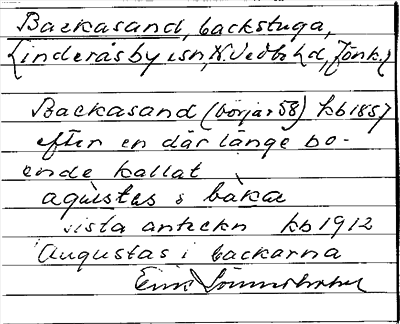 Backasand, backstuga,
Linderås by o sn, N. Vedbo hd, Jönk. l
Backasand (börjar 58) kb 1857
efter en där länge bo-
ende kallat
agustas i baka
sista anteckn kb 1912
Augustas i backarna
Erik